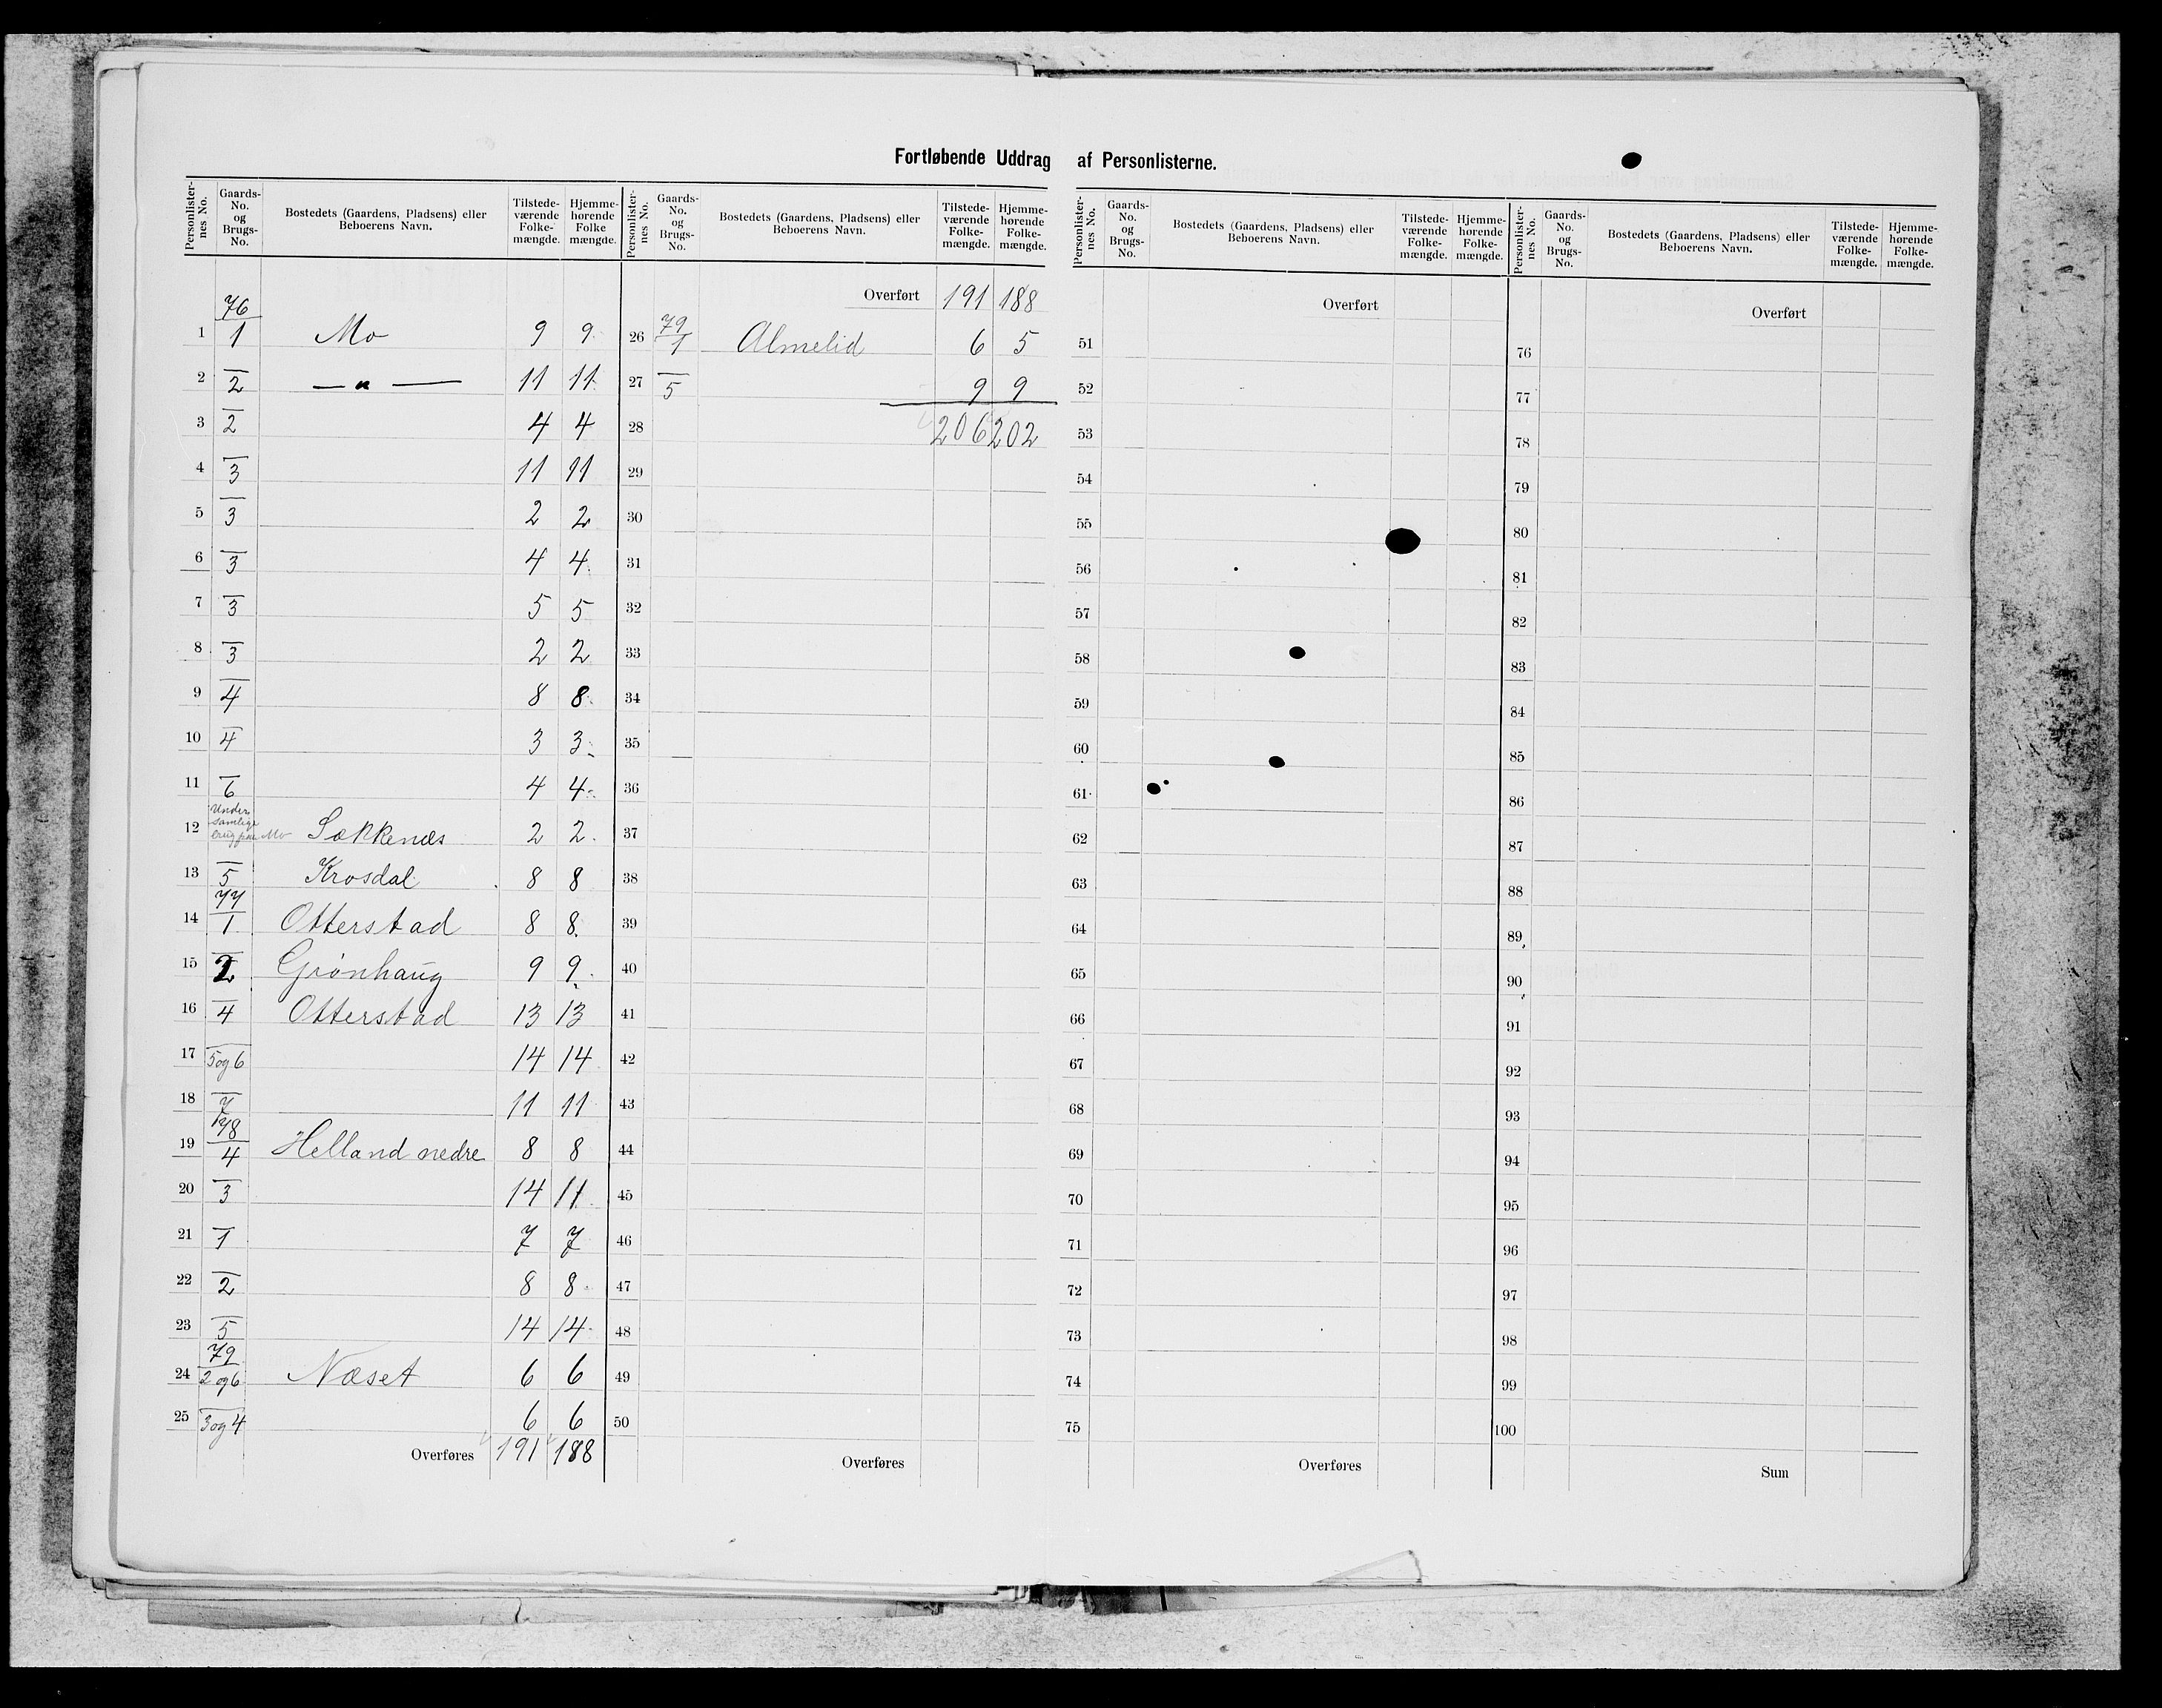 Fortløbende Uddrag af Personlisterne.
Personlister-nes No. Gaards-No. og Brugs-No. Bostedets (Gaardens, Pladsens) eller Beboerens Navn. Tilstede-værende Folke-mængde. Hjemme-hørende Folke mængde.
76
1 1 Mo 9 9
2 2 — " — 11 11
3 2 4 4
4 3 11 11
5 3 2 2
6 3 4 4
7 3 5 5
8 3 2 2
9 4 8 8
10 4 3 3
11 6 4 4
12 Under samlige brug fra Mo Sækkenæs 2 2
13 5 Krosdal 8 8
77
14 1 Otterstad 8 8
15 2 Grönhaug 9 9
16 4 Otterstad 13 13
17 5 og 6 14 14
18 7 11 11
78
19 4 Helland nedre 8 8
20 3 14 11
21 1 7 7
22 2 8 8
23 5 14 14
79
24 2 og 6 Næset 6 6
25 3 og 4 6 6
Overføres 191 188
Personlister-nes No. Gaards-No. og Brugs-No. Bostedets (Gaardens, Pladsens) eller Beboerens Navn. Tilstede-værende Folke-mængde. Hjemme-hørende Folke-mængde.
Overført 191 188
79
26 1 Almelid 6 5
27 5 9 9
28 206 202
29
30
31
32
33
34
35
36
37
38
39
40
41
42
43
44
45
46
47
48
49
50
Overføres
Personlister-nes No. Gaards-No. og Brugs-No. Bostedets (Gaardens, Pladsens) eller Beboerens Navn. Tilstede-værende Folke-mængde. Hjemme-hørende Folke-mængde.
Overført
51
52
53
54
55
56
57
58
59
60
61
62
63
64
65
66
67
68
69
70
71
72
73
74
75
Overføres
Personlister-nes No. Gaards-No. og Brugs-No. Bostedets (Gaardens, Pladsens) eller Beboerens Navn. Tilstede-værende Folke-mængde. Hjemme-hørende Folke-mængde.
Overført
76
77
78
79
80
81
82
83
84
85
86
87
88
89
90
91
92
93
94
95
96
97
98
99
100
Sum